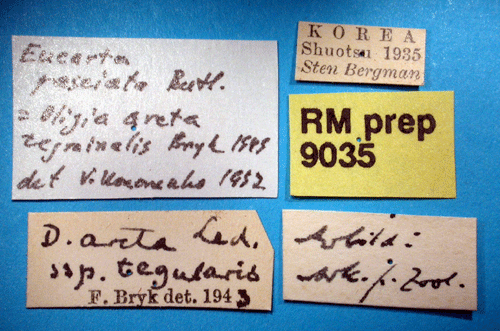 Eucarta
fasciata Butl.
= Oligia arcta
tegminalis Bryk 1949
det V. Kononenko 1992
KOREA
Shuotsu 1935
Sten Bergman
RM prep
9035
D. arcta Led.
ssp. tegularis
F. Bryk det. 1943
Ark. f. Zool.